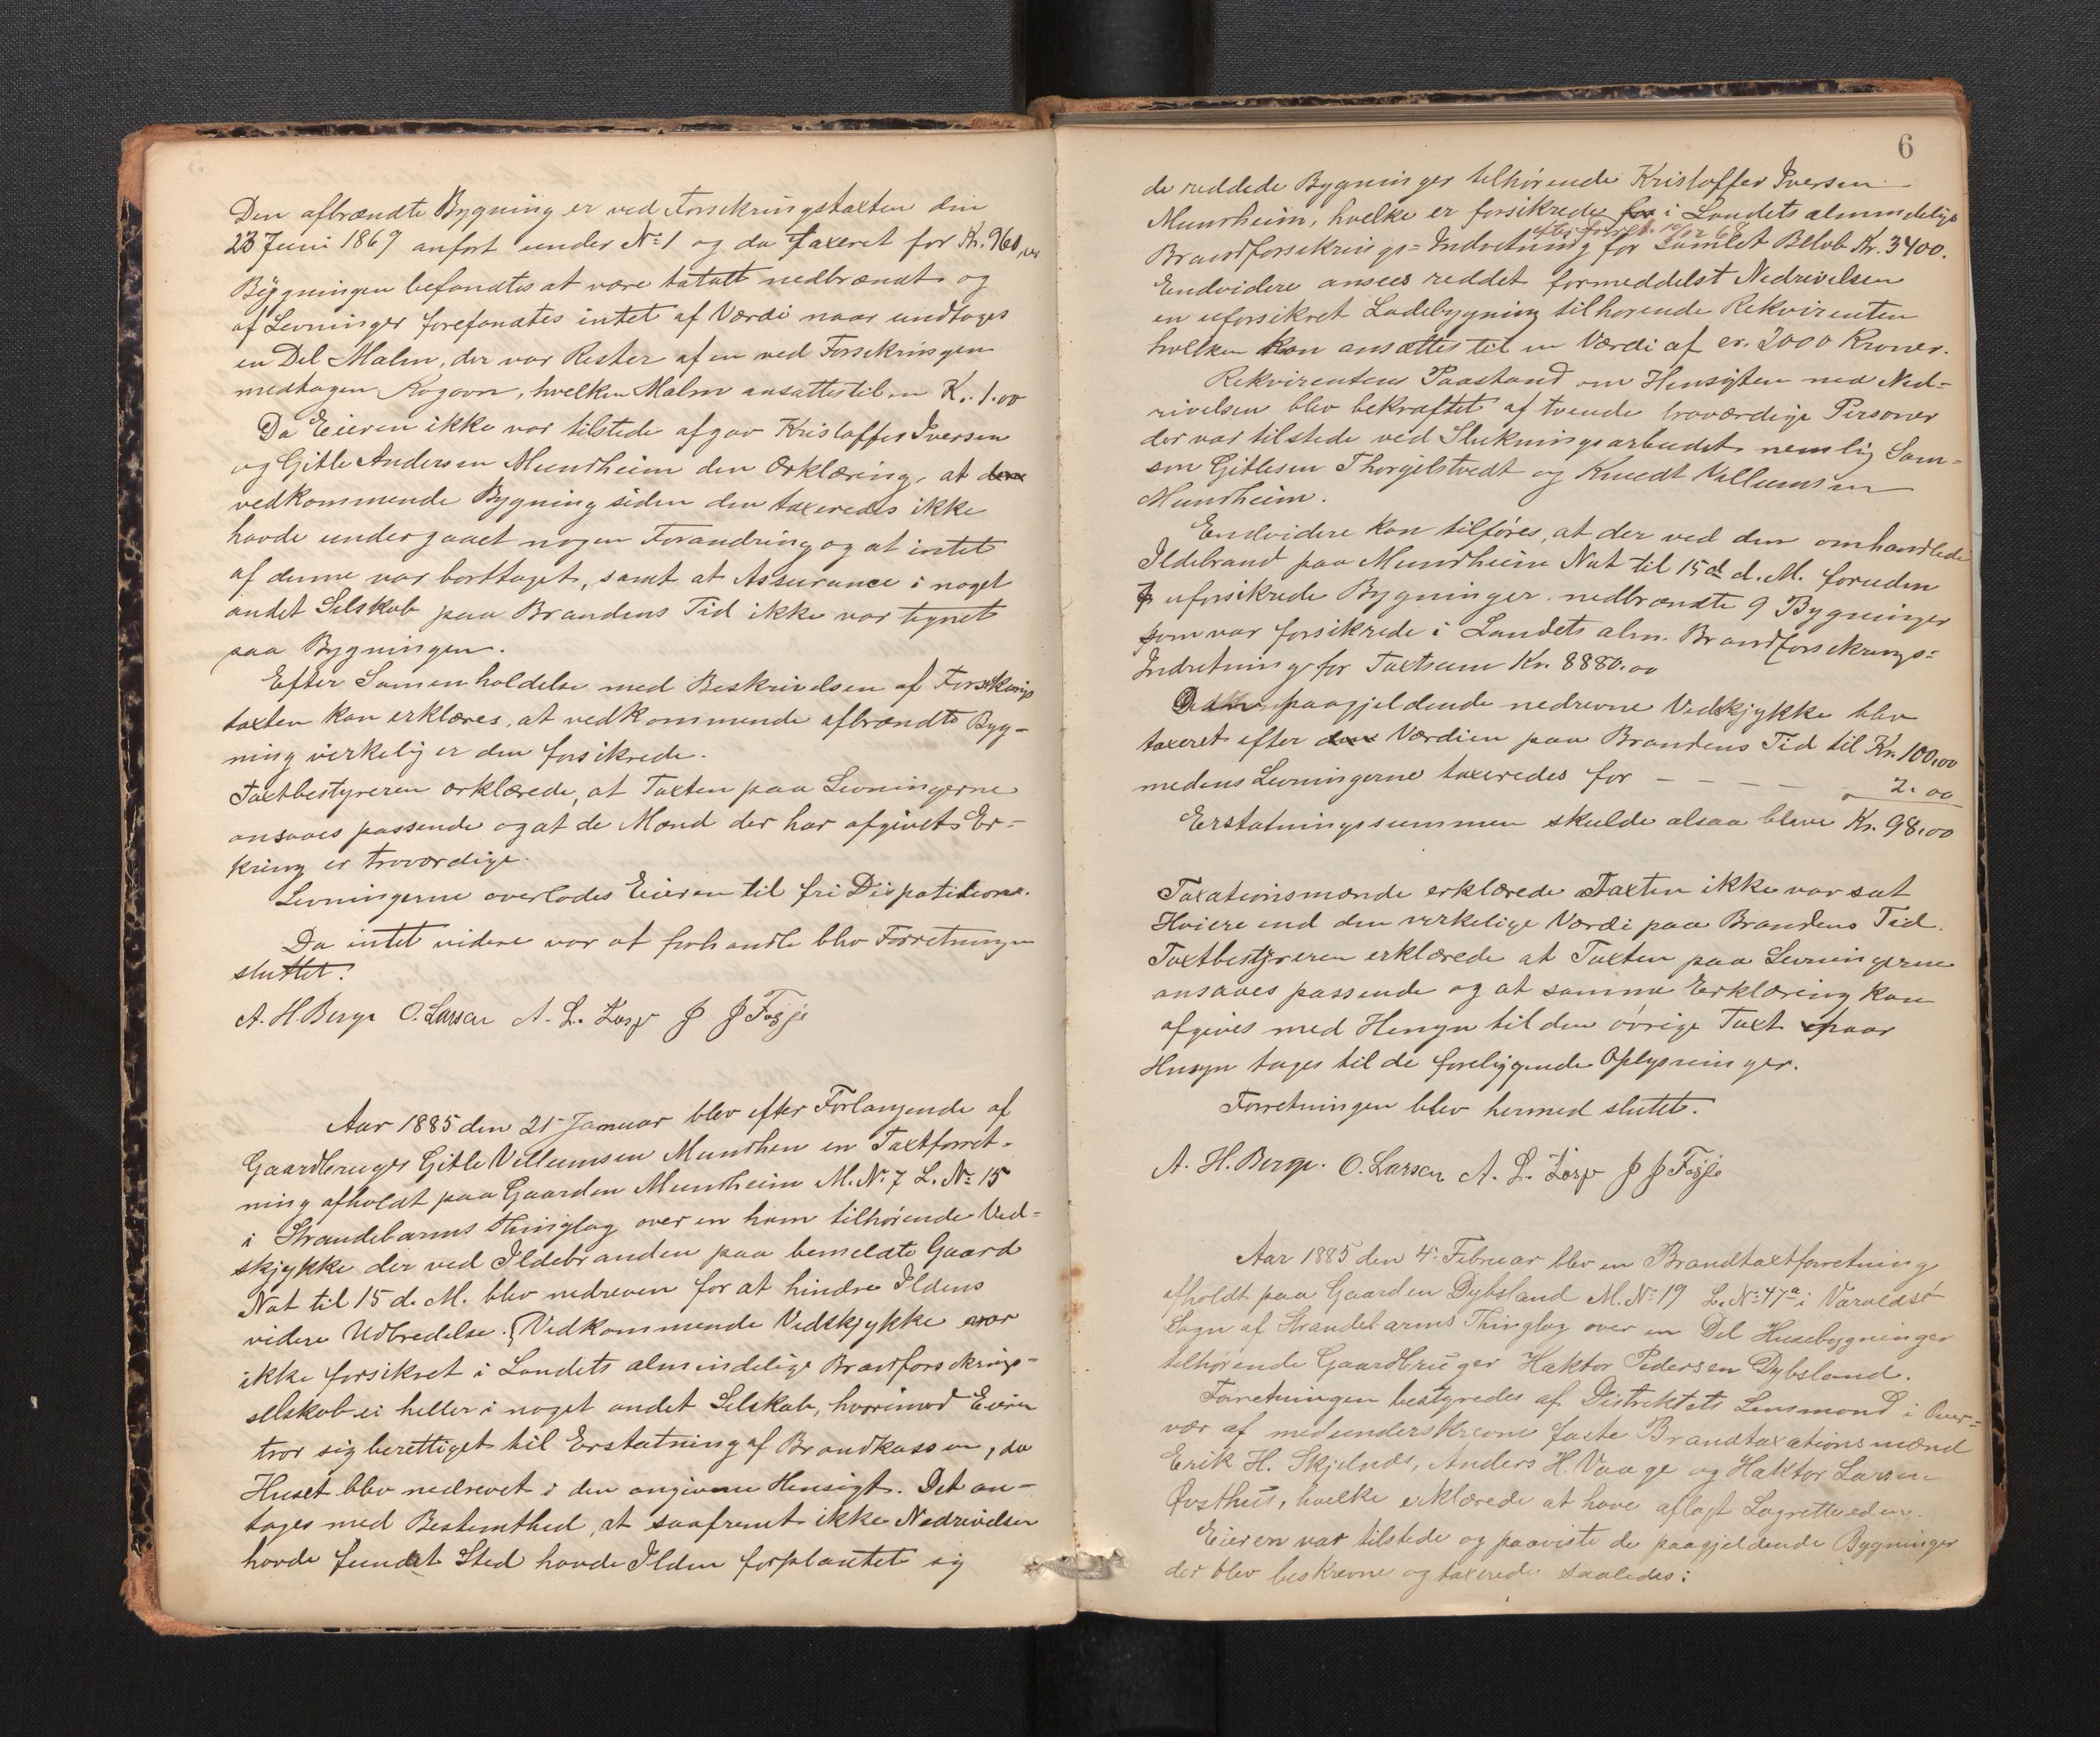 Den afbrændte Bygning er ved Forsikringstaxten den
23 Juni 1869 anført under No 1 og da taxeret for Kr. 960,00
Bygningen befandtes at være totalt nedbrændt og
af Levninger forefandtes intet af Værdi naar undtages
en Del Malm, der var Rester af en ved Forsikringen
medtagen Kogovn, hvilken Malm ansattes til en K. 1.00
Da Eieren ikke var tilstede afgav Kristoffer Iversen
og Gitle Andersen Mundheim den Erklæring, at
vedkommende Bygning siden den taxeredes ikke
havde undergaaet nogen Forandring og at intet
af denne var borttaget, samt at Assurance i noget
andet Selskab paa Brandens Tid ikke var tegnet
paa Bygningen.
Efter Samenholdelse med Beskrivelsen af Forsikrings
taxten kan erklæres, at vedkommende afbrændte Byg-
ning virkelig er den forsikrede.
Taxtbestyreren erklærede, at Taxten paa Levningerne
ansaaes passende og at de Mænd der har afgivet Er-
kring er troværdige.
Levningerne overlodes Eieren til fri Dispotition.
Da intet videre var at forhandle blev Forretningen
sluttet.
A. H. Berge O. Larsen A. L. J J
Aar 1885 den 21 Januar blev efter Forlangende af
Gaardbruger Gitle Villumsen Mundhen en Taxtforret-
ning afholdt paa Gaarden Mundheim M. No 7 L. No 15
i Strandebarms Thinglag over en ham tilhørende Ved-
skjykke der ved Ildebranden paa bemeldte Gaard
Nat til 15 d. M. blev nedreven for at hindre Ildens
videre Udbredelse. Vedkommende Vedskjykke var
ikke forsikret i Landets almindelige Brandforsikrings-
selskab ei heller i noget andet Selskab, hvorimod Eieren
tror sig berettiget til Erstatning af Brandkassen, da
Huset blev nedrevet i den angivne Hensigt. Det an-
tages med Bestemthed, at saafremt ikke Nedrivelsen
havde fundet Sted havde Ilden forplantet sig
6
de reddede Bygninger tilhørende Kristoffer Iversen
Mundheim, hvilke er forsikrede for i Landets almindelige
efter forret. 10/12 68
Brandforsikrings-Indretning for Samlet Beløb Kr. 3400.
Endvidere ansees reddet formeddelst Nedrivelsen
en uforsikret Ladebygning tilhørende Rekvirenten
hvilken kan ansættes til en Værdi af cr. 2000 Kroner.
Rekvirentens Paastand om Hensigten med Ned-
rivelsen blev bekræftet af tvende troværdige Personer
der var tilstede ved Slukningsarbeidet nemlig Sam-
son Gitlesen Thorgilstvedt og Knudt Villumsen
Mundheim.
Endvidere kan tilføres, at der ved den omhandlede
Ildebrand paa Mundheim Nat til 15de d. M. foruden
7 uforsikrede Bygninger nedbrændte 9 Bygninger
som var forsikrede i Landets alm. Brandforsikrings-
Indretning for Taxtsum Kr. 8880.00
Den paagjeldende nedrevne Vedskjykke blev
taxeret efter Værdien paa Brandens Tid til Kr. 100,00
medens Levningerne taxeredes for - - - - 2.00
Erstatningssummen skulde alsaa blive Kr. 98.00
Taxationsmænde erklærede Taxten ikke var sat
Høiere end den virkelige Værdi paa Brandens Tid.
Taxtbestyreren erklærede at Taxten paa Levningerne
ansaaes passende og at samme Erklæring kan
afgives med Hensyn til den øvrige Taxt naar
Hensyn tages til de foreliggende Oplysninger.
Forretningen blev hermed slutet.
A. H. Berge. O. Larsen A. L. J J
Aar 1885 den 4. Februar blev en Brandtaxtforretning
afholdt paa Gaarden Dybsland M. No 19 L. No 47a i Varaldsø
Sogn af Strandebarms Thinglag over en Del Husebygninger
tilhørende Gaardbruger Haktor Pedersen Dybsland.
Forretningen bestyredes af Distriktets Lensmand i Over-
vær af medunderskrevne faste Brandtaxationsmænd
Erik H. Skjelnæs, Anders H. Vaage og Haktor Larsen
Øvsthus, hvilke erklærede at have aflagt Lagretteeden.
Eieren var tilstede og paaviste de paagjeldende Bygninger
der blev beskrevne og taxerede saaledes: